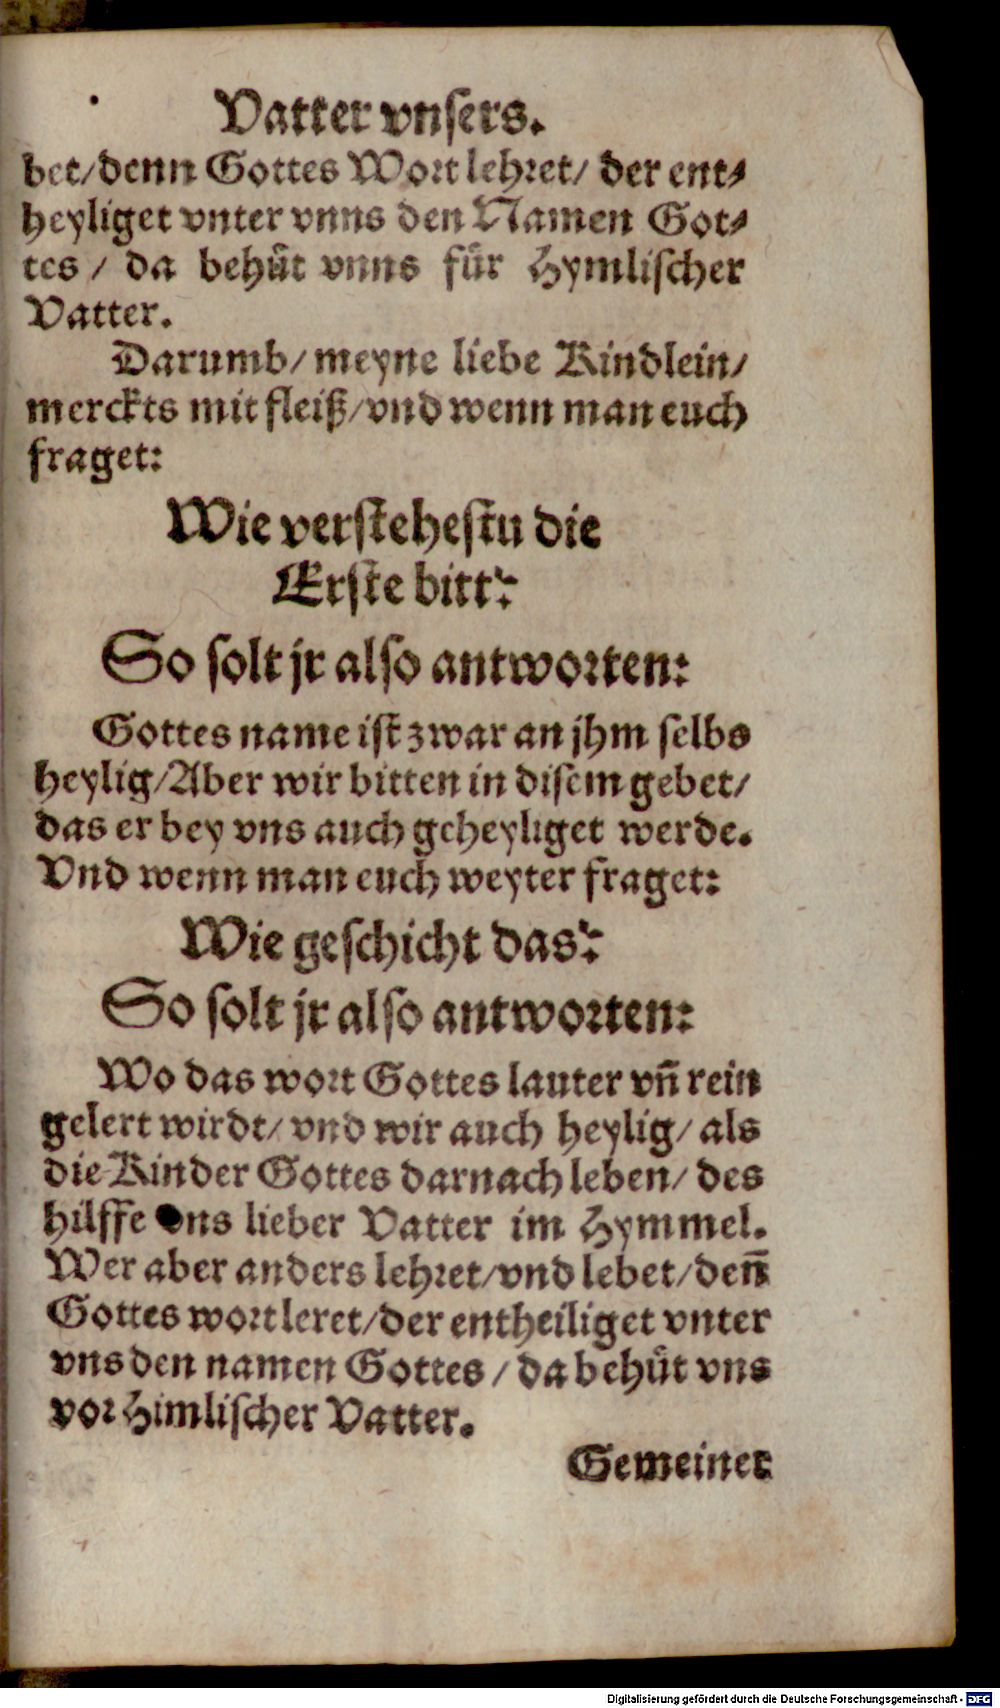 Vatter vnsers.
bet/denn Gottes Wort lehret/ der ent⸗
heyliget vnter vnns den Namen Got⸗
tes / da behüt vnns für Hymlischer
Vatter.
Darumb/ meyne liebe Kindlein/
merckts mit fleiß/vnd wenn man euch
fraget:
Wie verstehestu die
Erste bitt?
So solt jr also antworten:
Gottes name ist zwar an jhm selbs
heylig/Aber wir bitten in disem gebet/
das er bey vns auch geheyliget werde.
Vnd wenn man euch weyter fraget:
Wie geschicht das?
So solt jr also antworten:
Wo das wort Gottes lauter vñ rein
gelert wirdt/ vnd wir auch heylig/ als
die Kinder Gottes darnach leben/ des
hilffe Vns lieber Vatter im Hymmel.
Wer aber anders lehret/vnd lebet/den̄
Gottes wort leret/der entheiliget vnter
vns den namen Gottes / da behüt vns
vor Himlischer Vatter.
Gemeiner
Digitalisierung gefördert durch die Deutsche Forschungsgemeinschaft - DFG